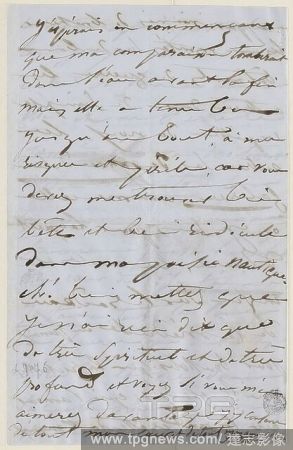 j'espérais en commençant
que ma comparaison tomberait
dans l'eau avant la fin
mais elle a tenu bon
jusqu'au bout, à mes
risques et périls, car vous
devez me trouver bien
bête et bien ridicule
dans ma poésie nautique.
Eh! bien mettez que
je n'ai rien dit que
de très spirituel et de très
profond et voyez si vous m'en
aimerez
de tout mon
TPG
www.tpgnews.com 達志影像